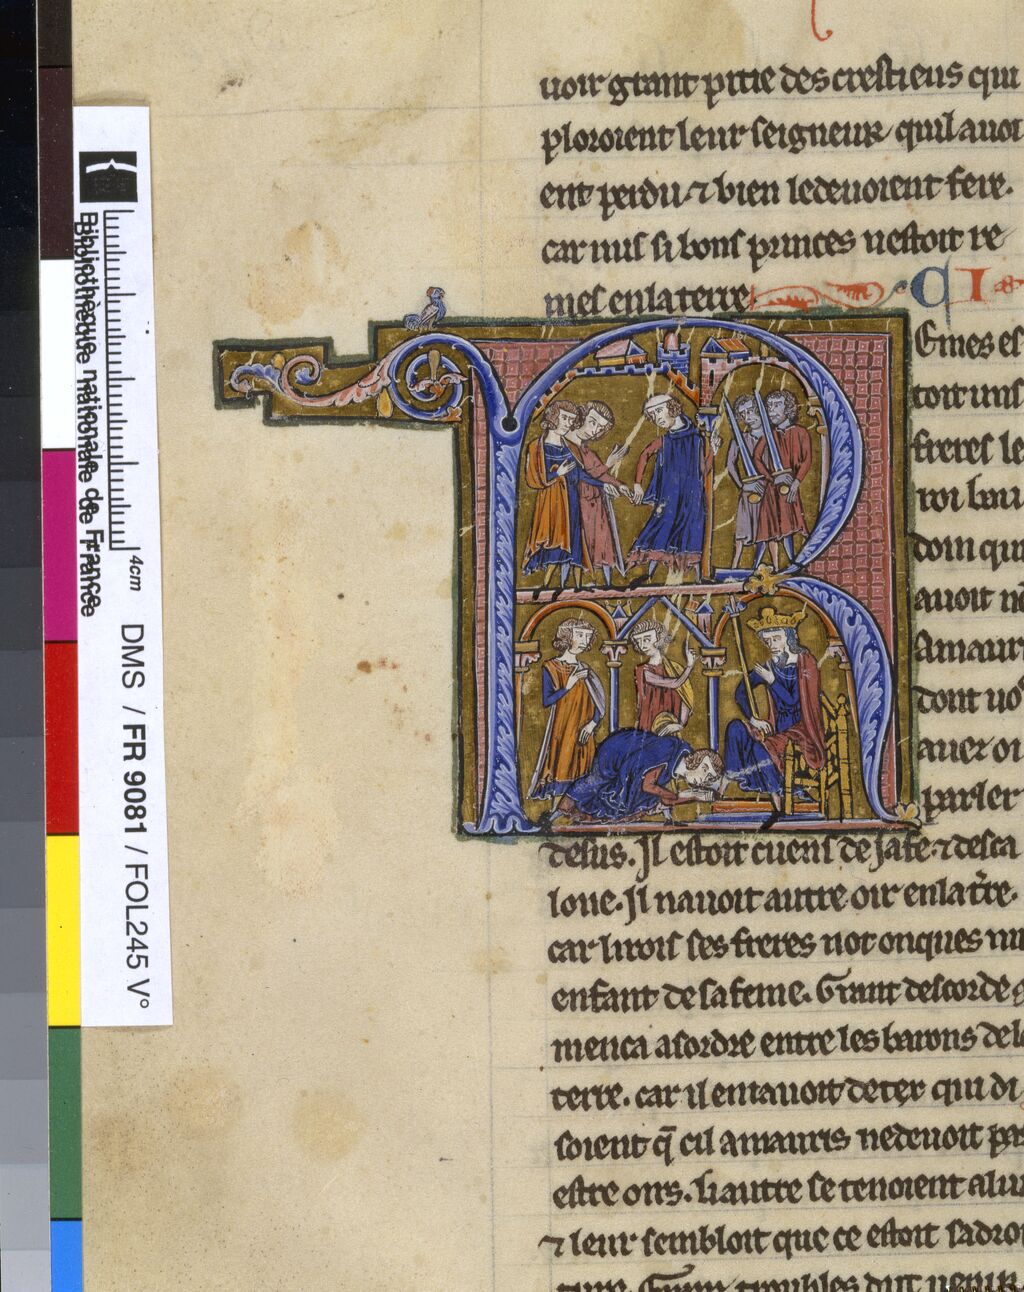 Bibliothèque nationale de France
4cm
DMS / FR 9081 / FOL245 V°
uoir grant pitie des crestiens qui
plororent leur seigneur quil auoi
ent perdu ⁊ bien le deuoient fere.
car nus si bons princes nestoit re
mes en la terre CI
R
Emes es
toit uns
freres le
roi bau
doin qui
auoit nõ
Amauri
dont uoˢ
auez oi
parler
desus. Il estoit cuens de Jafe ⁊ desca
lone. Il nauoit autre oir en la tr̃re.
car li rois ses freres not onques nu
enfant de sa feme. Grant descorde
menca asordre entre les barons de l
terre. car il en i auoit de tex qui di
soient q̃ cil amauris ne deuoit pas
estre oirs. li autre se tenoient a lui
⁊ leur sembloit que ce estoit sa droi
ture. Granz troubles dut uenir